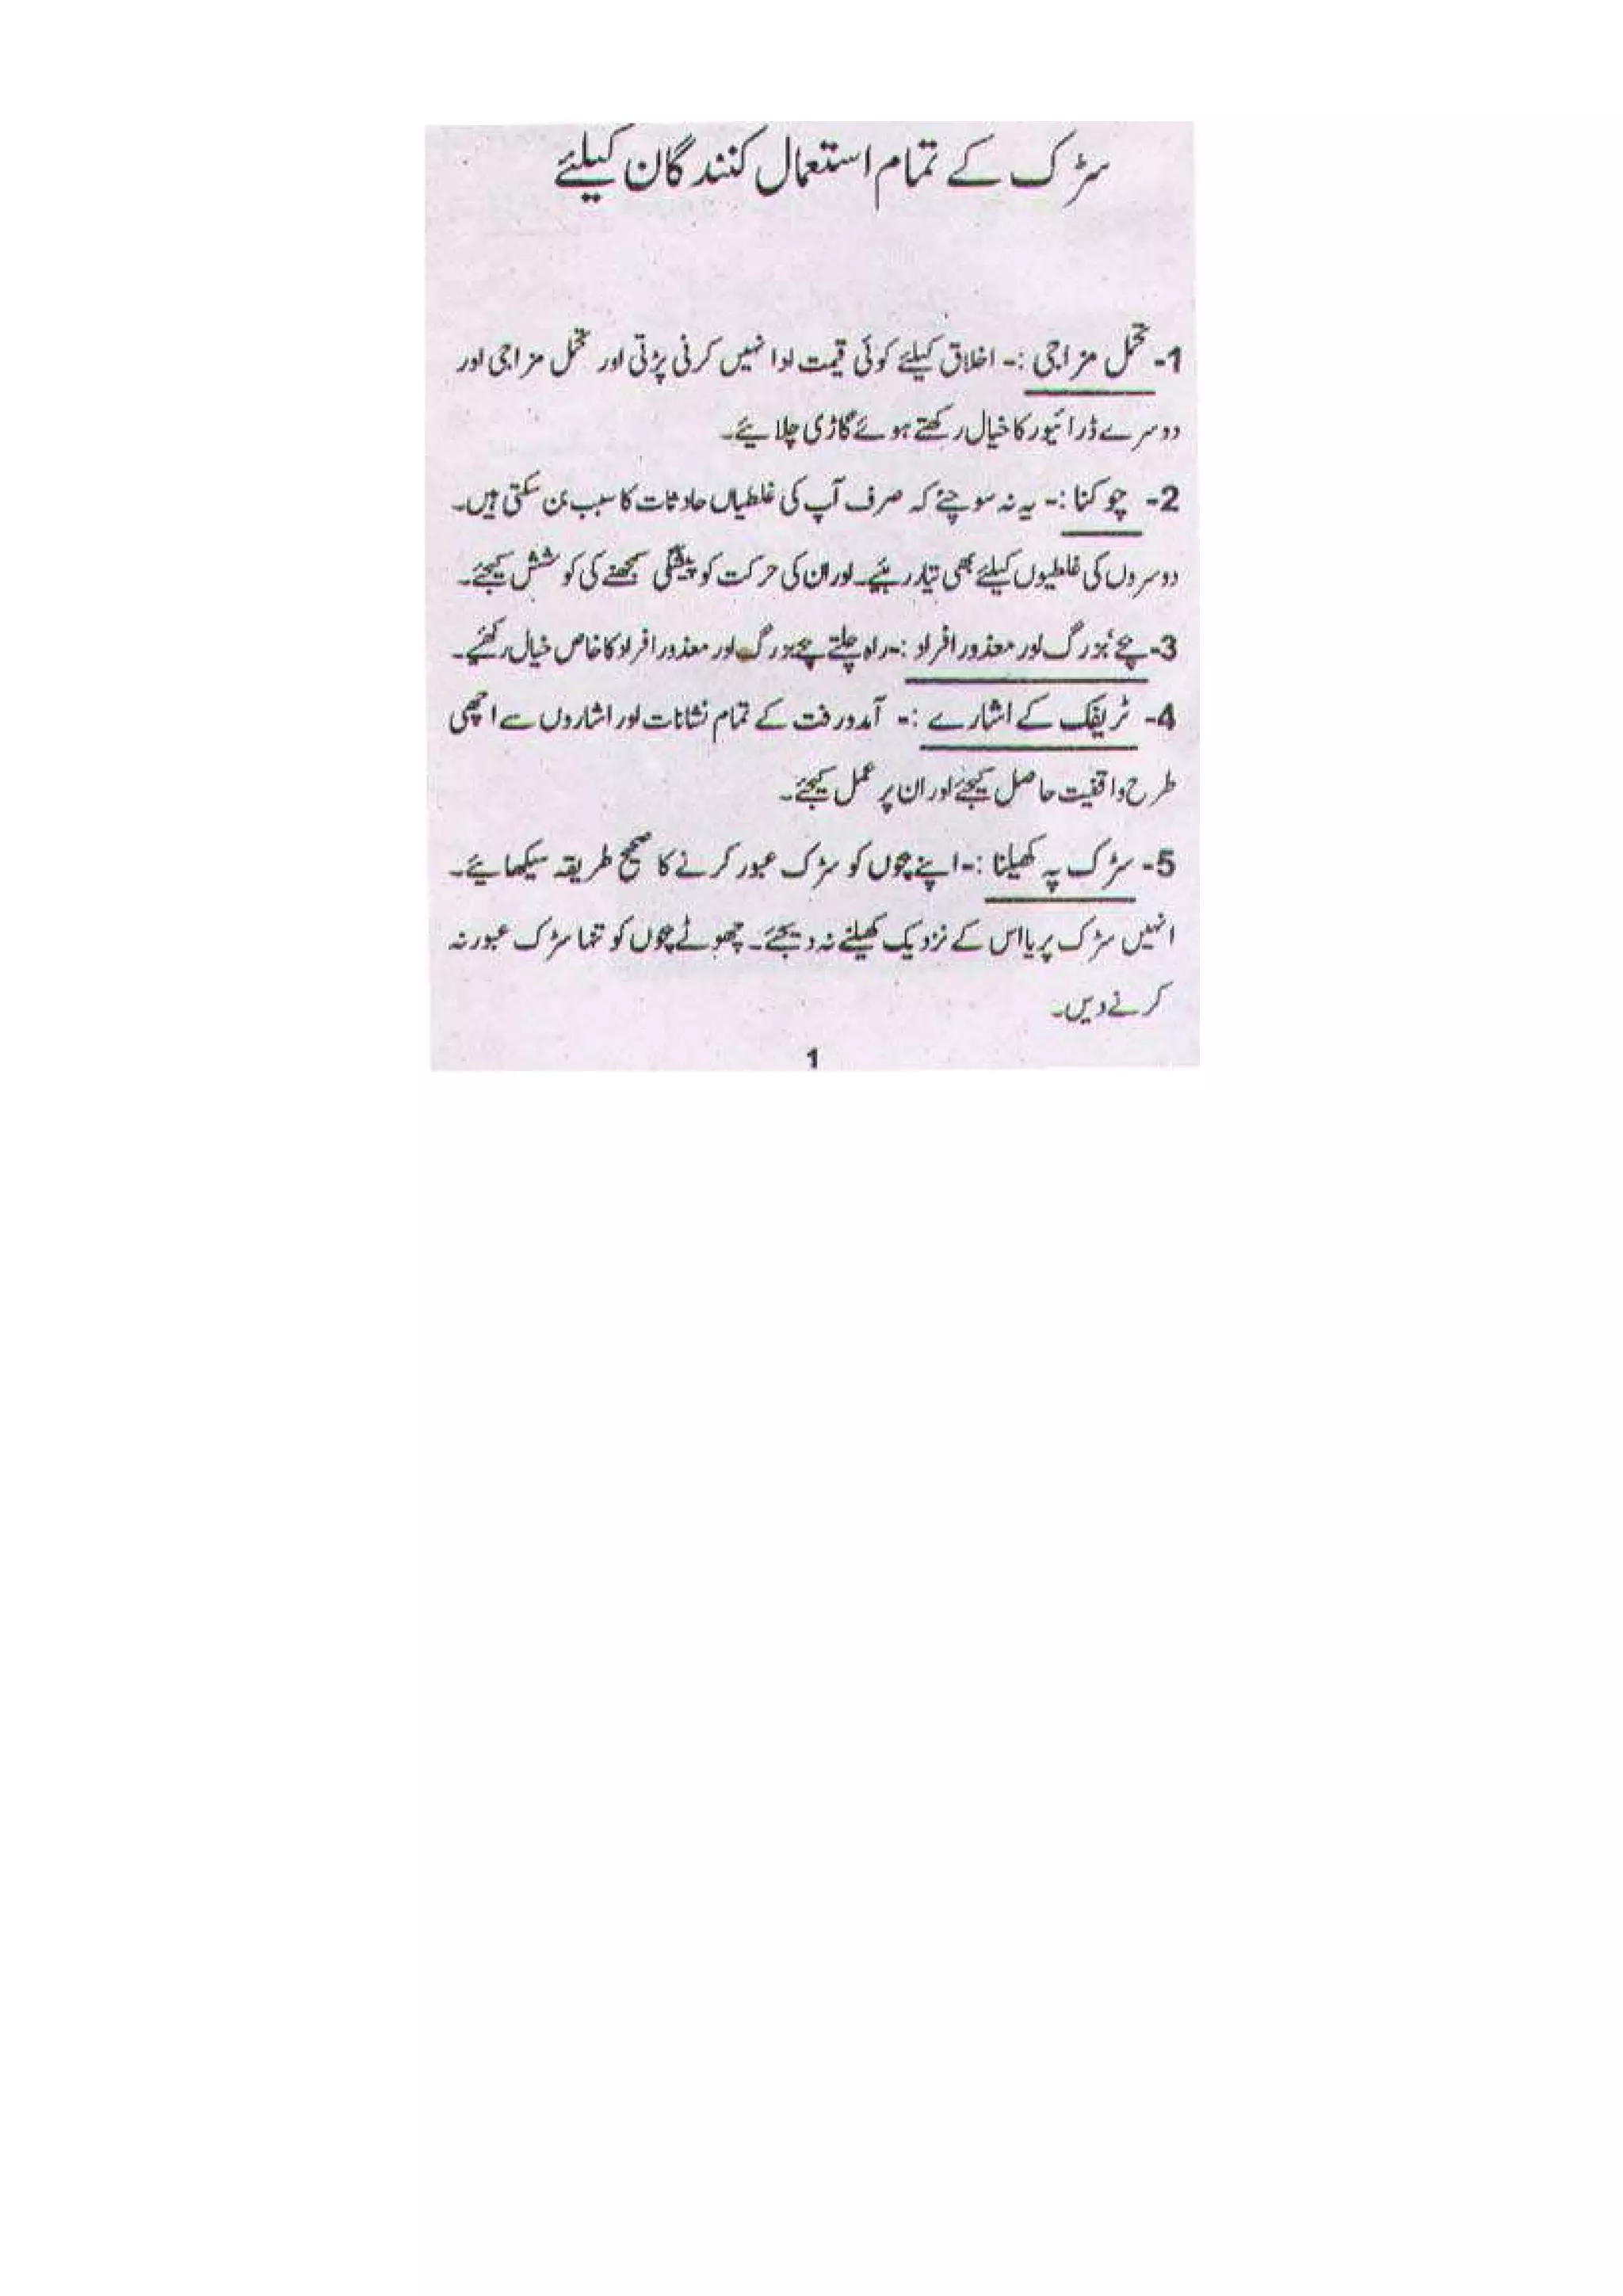 سڑک کے تمام استعمال کنندگان کیلئے
1- تحمل مزاجی :- اخلاق کیلئے کوئی قیمت ادا نہیں کرنی پڑتی اور تحمل مزاجی اور
دوسرے ڈرائیور کا خیال رکھتے ہوئے گاڑی چلائیے۔
2- چوکنا :- یہ نہ سوچئے کہ صرف آپ کی غلطیاں حادثات کا سبب بن سکتی ہیں۔
دوسروں کی غلطیوں کیلئے بھی تیار رہئیے۔ اور ان کی حرکت کو پیشگی سمجھنے کی کوشش کیجئے۔
3- بچے‘ بزرگ اور معذور افراد :- راہ چلتے بچے بزرگ اور معذور افراد کا خاص خیال رکھئے۔
4- ٹریفک کے اشارے :- آمدورفت کے تمام نشانات اور اشاروں سے اچھی
طرح واقفیت حاصل کیجئے اور ان پر عمل کیجئے۔
5- سڑک پہ کھیلنا :- اپنے بچوں کو سڑک عبور کرنے کا صحیح طریقہ سیکھائیے۔
انہیں سڑک پر یا اس کے نزدیک کھیلنے نہ دیجئے۔ چھوٹے بچوں کو تنہا سڑک عبور نہ
کرنے دیں۔
1